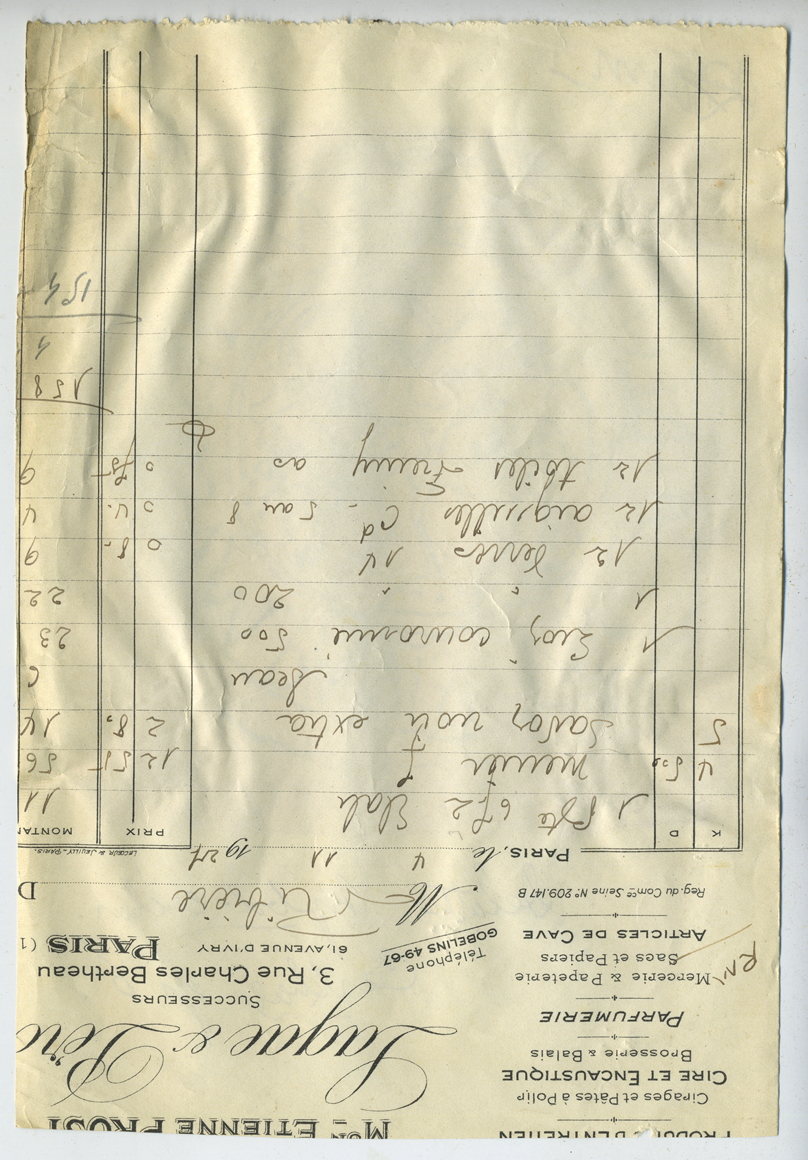 PRODUITS D'ENTRETIEN
Cirages et Pâtes à Polir
CIRE ET ENCAUSTIQUE
Brosserie & Balais
PARFUMERIE
Mercerie & Papeterie
Sacs et Papiers
ARTICLES DE CAVE
Reg. du Comce Seine No 209.147 B
Mon ETIENNE PROST
Lagae &
SUCCESSEURS
3, Rue Charles Bertheau
61, AVENUE D'IVRY
PARIS (1
Téléphone
GOBELINS 49-67
Mr Ribière
D
PARIS, le 4 11 1927
LECŒUR & JEUILLY - PARIS.
K D PRIX MONTAN
1 6/2 11
4 500 Menier 12 51 56
5 Savon noir extra 2 8 14
seau
1 couronné 500 23
1 " " 200 22
12 Verres 14 0 8 9
12 aiguilles Cd - 5 au 8 0 4 4
12 toiles as 0 75 9
158